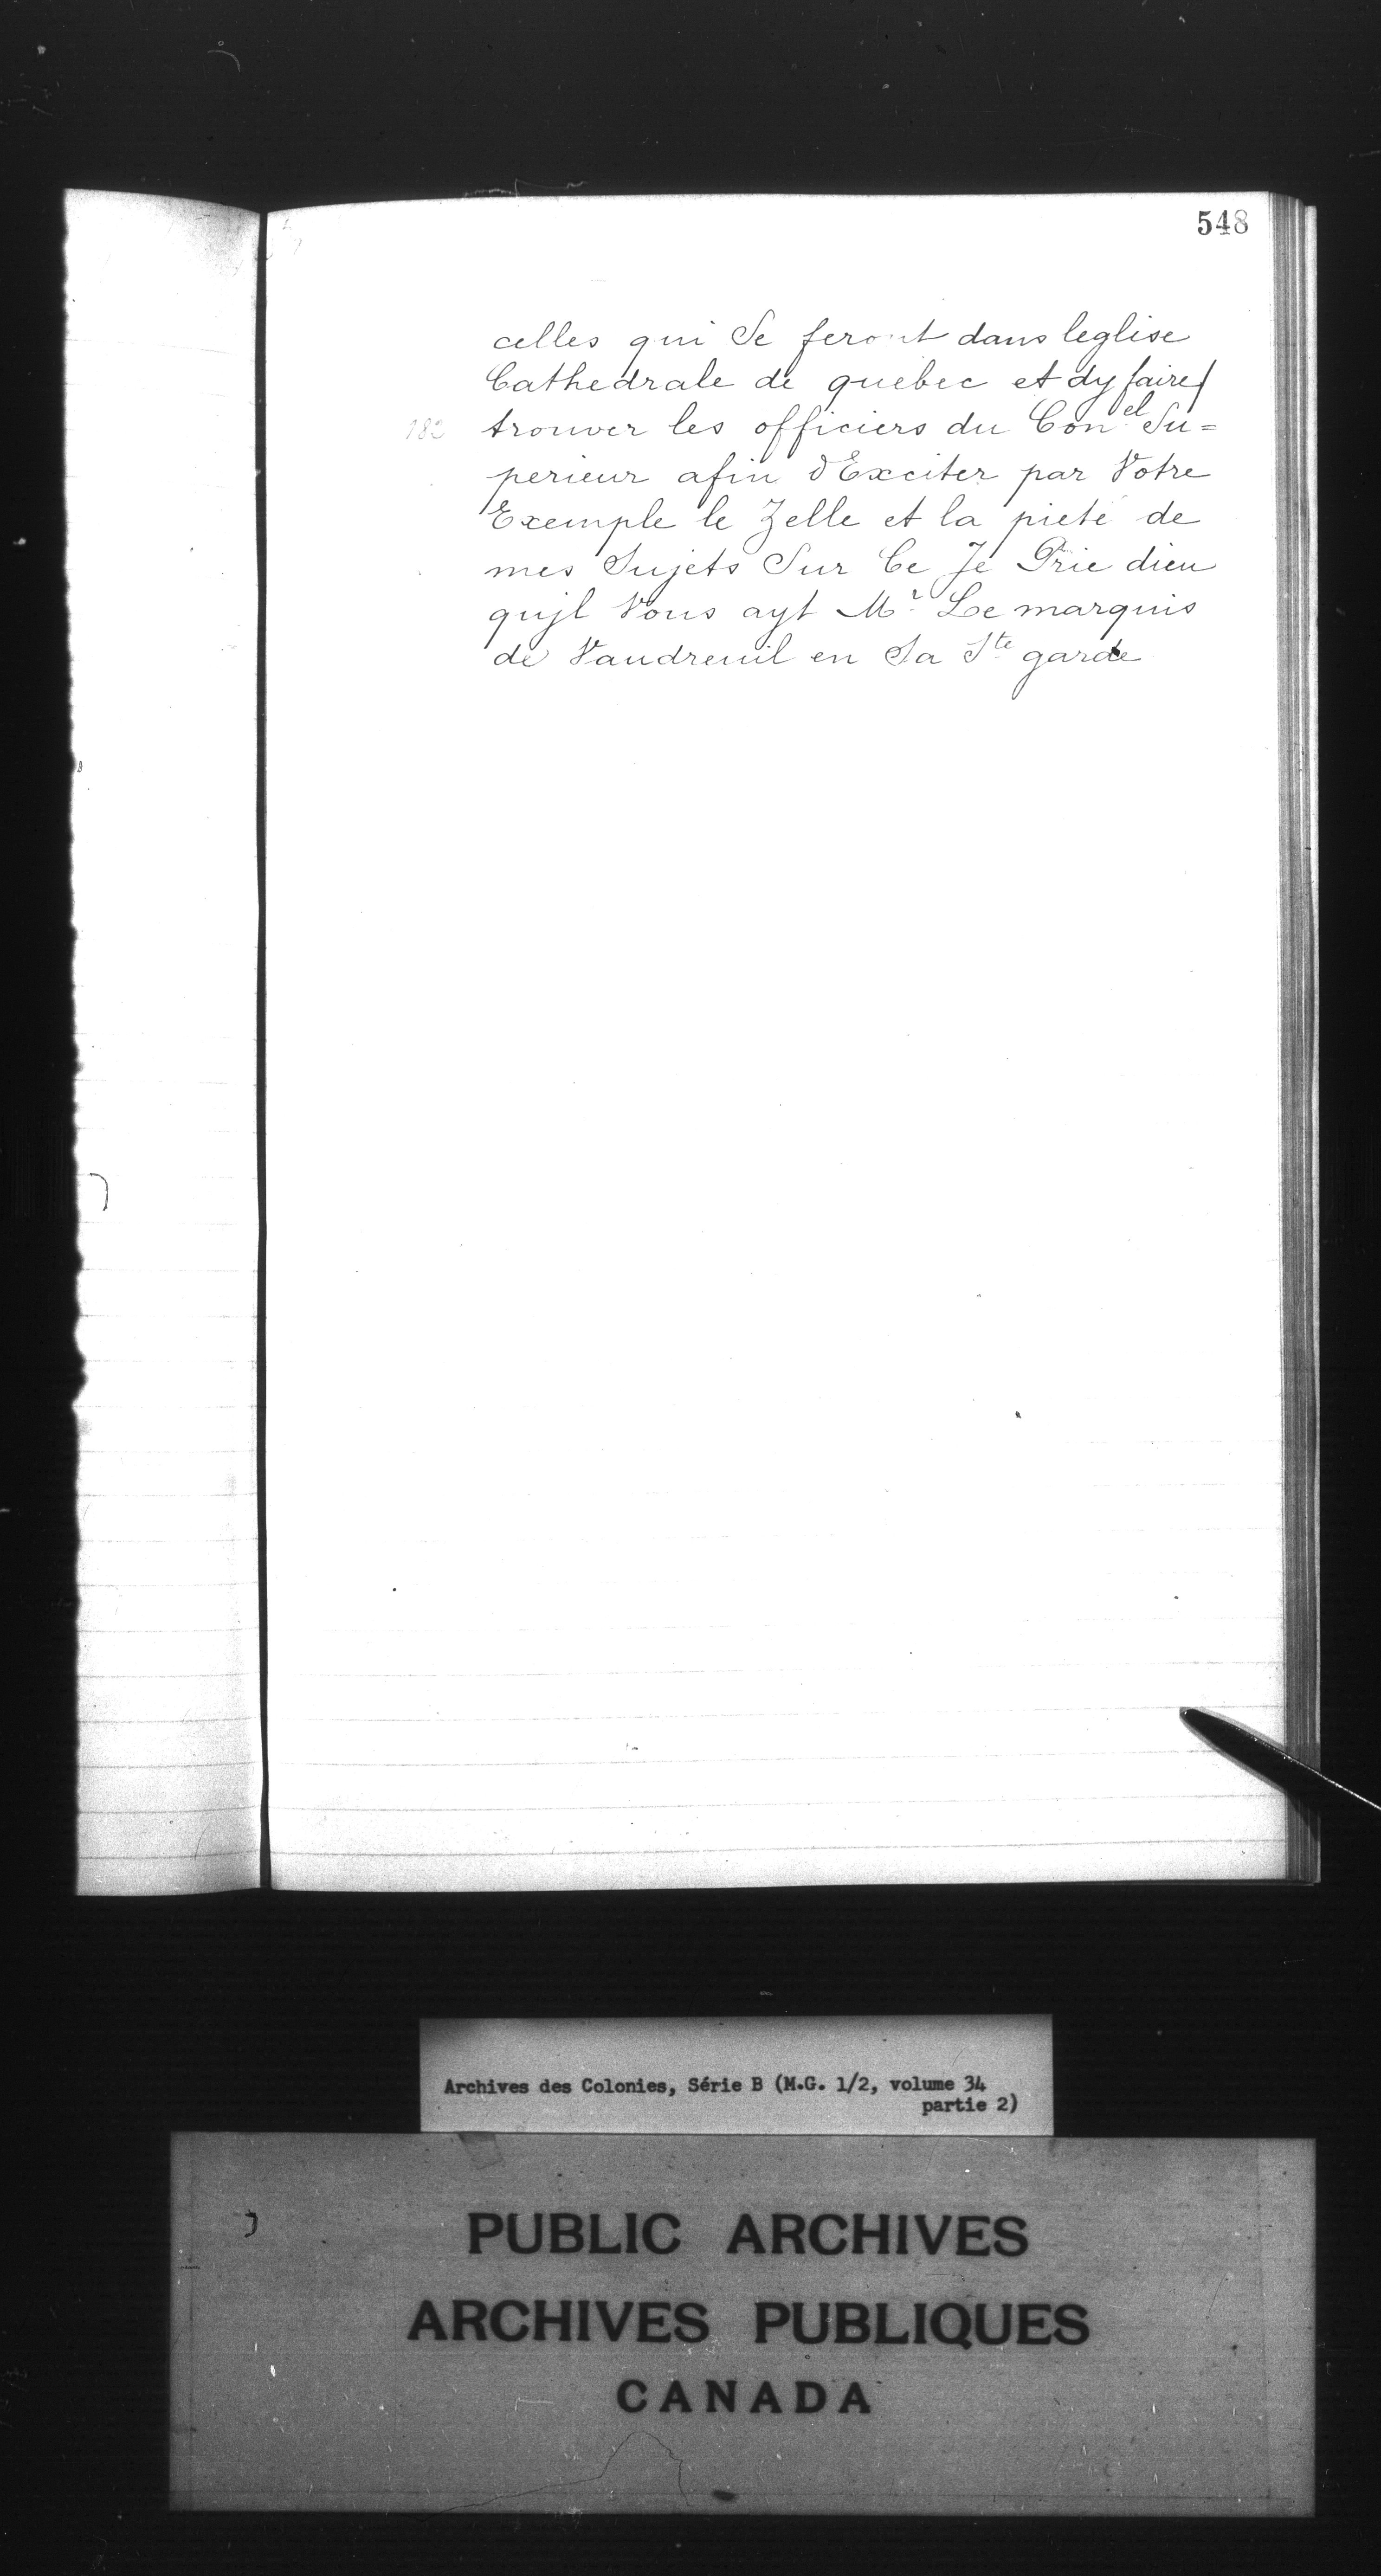 548
celles qui Se feront dans leglise
Cathedrale de quebec et dy faire/
182 trouver les officiers du Con.el Su=
perieur afin d'Exciter par Votre
Exemple le Zelle et la pieté de
mes Sujets Sur Ce Je Prie dieu
qujl Vous ayt Mr. Le marquis
de Vaudreuil en Sa Ste garde
Archives des Colonies, Série B (M.G. 1/2, volume 34
partie 2)
PUBLIC ARCHIVES
ARCHIVES PUBLIQUES
CANADA